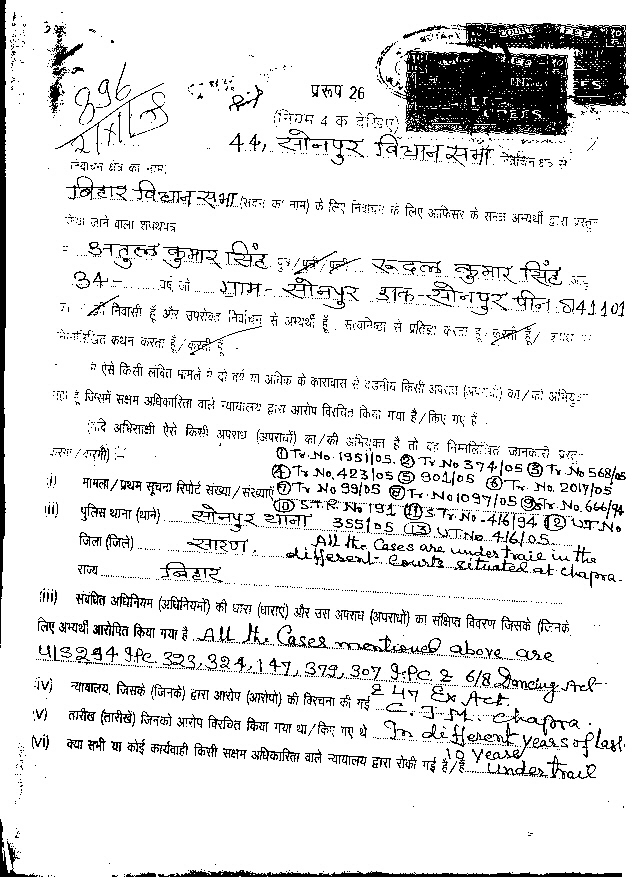 896
प्ररूप 26
(नियम 4 क देखिए)
44, सोनपुर विधान सभा निर्वाचन क्षेत्र से
निर्वाचन क्षेत्र का नाम)
बिहार विधान सभा (सदन का नाम) के लिए निर्वाचन के लिए आफिसर के समक्ष अभ्यर्थी द्वारा प्रस्तुत
किया जाने वाला शपथपत्र
अतुल कुमार सिंह पुत्र/पुत्री/पत्नी रूदल कुमार सिंह आयु
34- वर्ष, जो ग्राम- सोनपुर डाक- सोनपुर पीन 841101
का / की निवासी हूँ और उपरोक्त निर्वाचन से अभ्यर्थी हूँ, सत्यनिष्ठा से प्रतिज्ञा करता हूं/करती हूँ/ शपथ पर
निम्नलिखित कथन करता हूँ/करती हूँ
मैं ऐसे किसी लंबित मामले में दो वर्ष या अधिक के कारावास से दंडनीय किसी अपराध (अपराधों) का/की अभियुक्त
रहा हूं जिसमें सक्षम अधिकारिता वाले न्यायालय द्वारा आरोप विरचित किया गया है/किए गए हैं
(यदि अभिसाक्षी ऐसे किसी अपराध (अपराधों) का/की अभियुक्त है तो वह निम्नलिखित जानकारी प्रस्तुत
करेगा/करेगी) :-
① Tr. No. 1951/05. ② Tr. No 374/05 ③ Tr. No 568/05
④ Tr. No. 423/05 ⑤ 901/05 ⑥ Tr. No. 2017/05
(i) मामला/प्रथम सूचना रिपोर्ट संख्या/संख्याएं ⑦ Tr No 99/05 ⑧ Tr. No 1097/05 ⑨ Tr. No. 666/74
⑩ S.T.R. No 191 ⑪ S Tr. No-416/94 ⑫ U.T. No
(ii) पुलिस थाना (थाने) सोनपुर थाना 355/05 ⑬ U.T. No. 416/05.
जिला (जिले) सारण, All the Cases are under trail in the
different Courts situated at Chapra.
राज्य बिहार
(iii) संबंधित अधिनियम (अधिनियमों) की धारा (धाराएं) और उस अपराध (अपराधों) का संक्षिप्त विवरण जिसके (जिनके)
लिए अभ्यर्थी आरोपित किया गया है All the Cases mentioned above are
U/S 294 IPC 323, 324, 147, 379, 307 I.PC 2 6/8 Dancing Act
2 47 Ex Act.
(iv) न्यायालय, जिसके (जिनके) द्वारा आरोप (आरोपों) की विरचना की गई C. J. M. Chapra.
(v) तारीख (तारीखें) जिनको आरोप विरचित किया गया था/किए गए थे In different years of last
10 years
(vi) क्या सभी या कोई कार्यवाही किसी सक्षम अधिकारिता वाले न्यायालय द्वारा रोकी गई है/हैं under trail